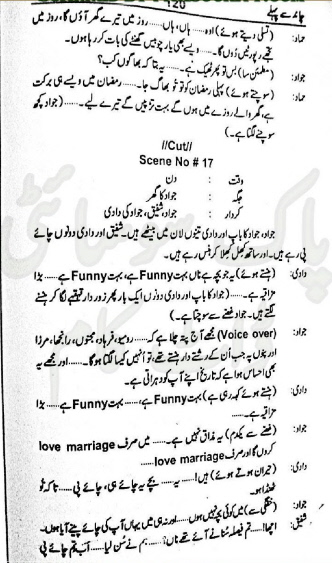 چاند سے پہلے
120
حماد: (تسلی دیتے ہوئے) اوہ...... ہاں، ہاں...... روز میں تیرے گھر آؤں گا، روز میں
تجھے رپورٹیں دُوں گا۔ ویسے بھی یار چوبیس گھنٹے کی بات کر رہا ہوں۔
جواد: (مطمئن سا) بس تو پھر ٹھیک ہے...... یہ بتا کہ بھاگوں کب؟
حماد: (سوچتے ہوئے) پہلی رمضان کو تُو بھاگ جا۔ رمضان میں ویسے ہی برکت
ہے، گھر والے روزے میں ہوں گے بہت تڑپیں گے تیرے لیے۔...... (جواد کچھ
سوچنے لگتا ہے۔)
//Cut//
Scene No # 17
وقت : دن
جگہ : جواد کا گھر
کردار : جواد، شفیق، جواد کی دادی
جواد، جواد کا باپ اور دادی تینوں لان میں بیٹھے ہیں۔ شفیق اور دادی دونوں چائے
پی رہے ہیں۔ اور ساتھ کھل کھلا کر ہنس رہے ہیں۔
دادی: (ہنستے ہوئے) یہ جو بچہ ہے ناں بہت Funny ہے، بہت Funny ہے...... بڑا
مزاقیہ ہے...... (جواد کا باپ اور دادی دونوں ایک بار پھر زور دار قہقہے لگا کر ہنسنے
لگتے ہیں۔ جواد غصے سے سوچتا ہے۔)
جواد: (Voice over) مجھے آج پتہ چلا ہے کہ...... رومیو، فرہاد، مجنوں، رانجھا، مرزا
اور پنوں پہ جب اُن کے رشتے دار ہنستے تھے، تو اُنہیں کیسا لگتا ہوگا...... اور مجھے یہ
بھی احساس ہوا ہے کہ تاریخ اپنے آپ کو دہراتی ہے۔
دادی: (ہنستے ہوئے کہہ رہی ہے) بہت Funny ہے...... بہت Funny ہے...... بڑا
مزاقیہ ہے۔
جواد: (غصے سے یکدم) یہ مذاق نہیں ہے...... میں صرف love marriage
کروں گا اور صرف love marriage......
دادی: (حیران ہوتے ہوئے) ہیں!...... یہ...... بچے یہ چائے پی، چائے پی...... تاکہ تُو
ٹھنڈا ہو۔
جواد: (خفگی سے) میں کوئی بچہ نہیں ہوں...... اور نہ ہی میں یہاں آپ کی چائے پینے آیا ہوں۔
شفیق: اچھا!...... تم فیصلہ سُنانے آئے تھے ناں؟...... ہم نے سُن لیا...... اَب تم چائے پی